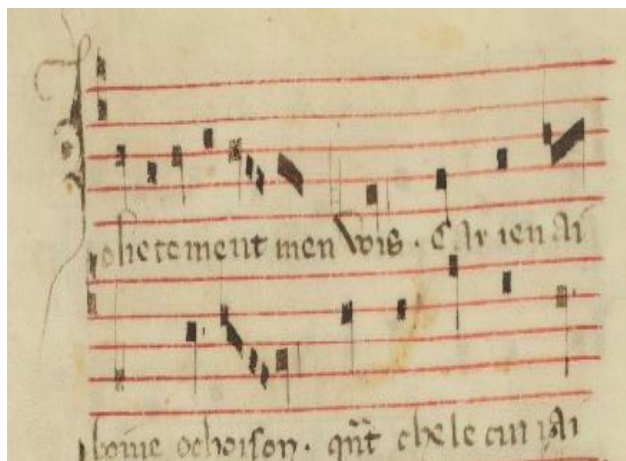 Jolietement men vois. Car ien ai
boine ochoison. qñt chele cui iai